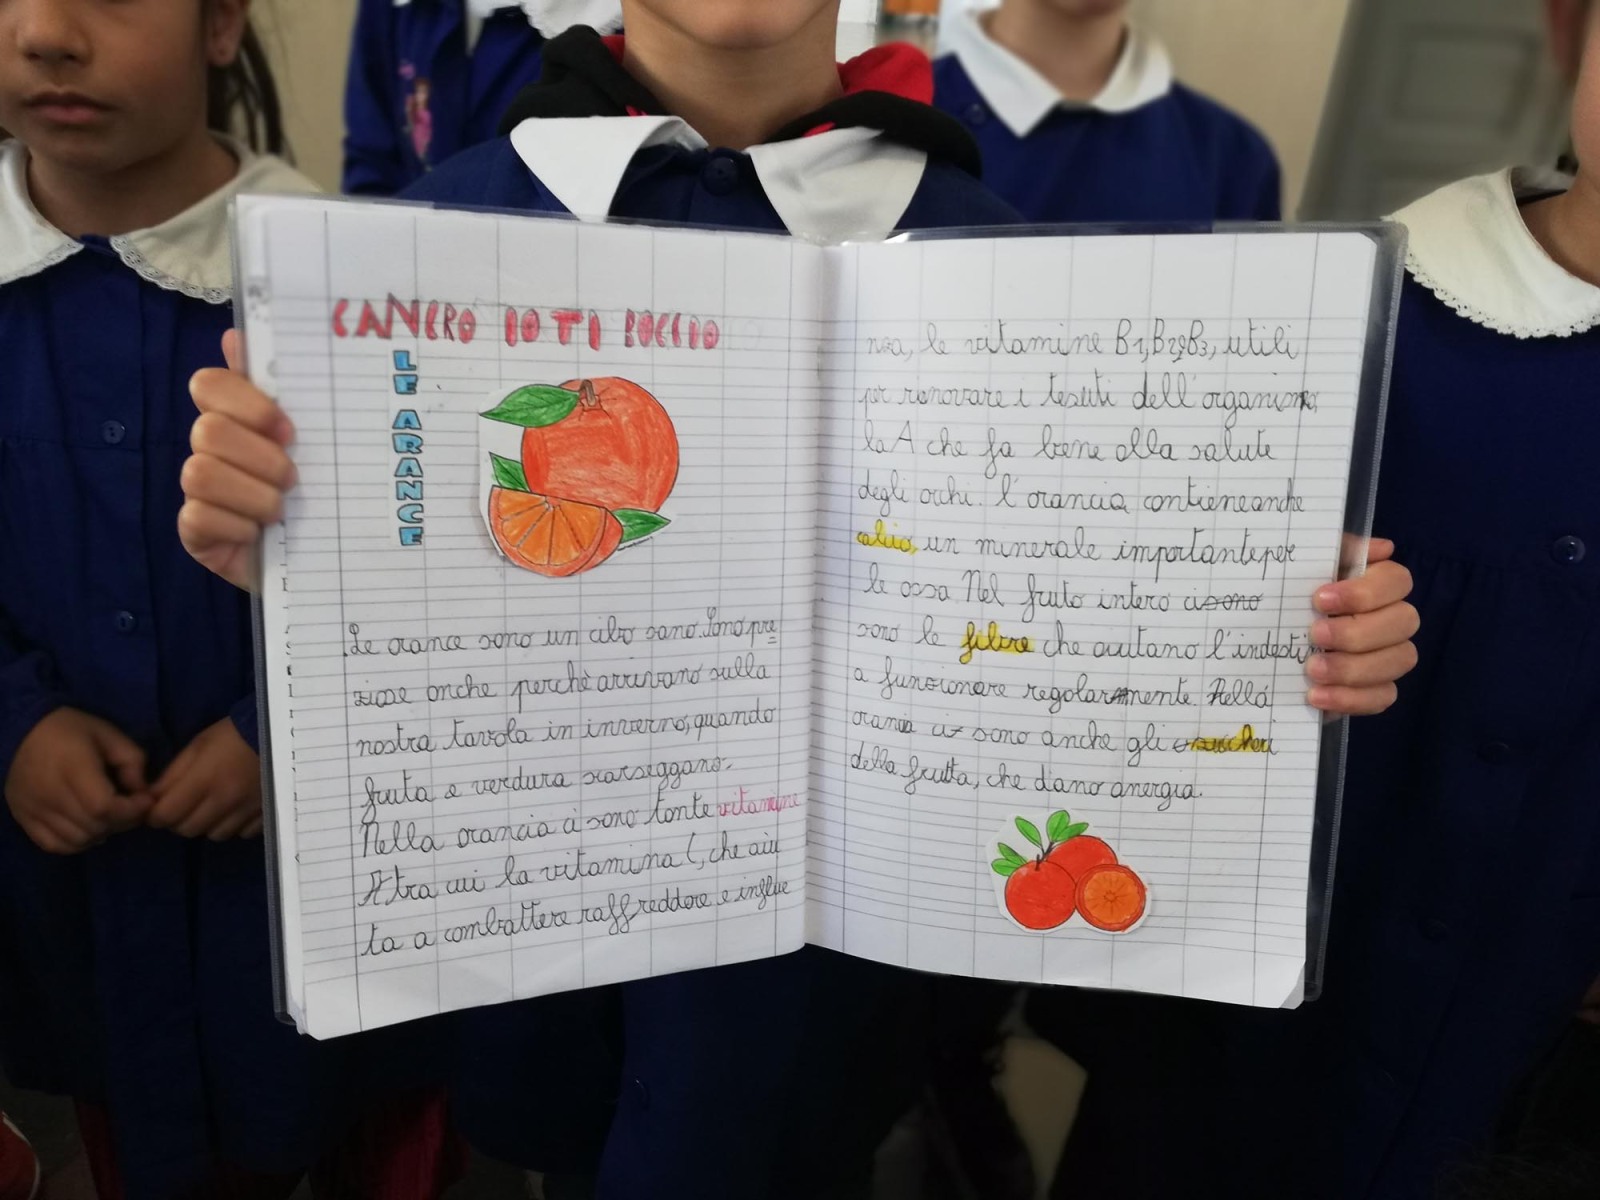 CANCRO IO TI BOCCIO
LE ARANCE
Le arance sono un cibo sano. Sono pre
ziose anche perchè arrivano sulla
nostra tavola in inverno, quando
fruta e verdura scarseggano.
Nella arancia ci sono tante vitamine
tra cui la vitamina C, che aiu
ta a combattere raffreddore e influe
nza, le vitamine B1, B2, B3, utili
per rinnovare i tessuti dell'organismo,
la A che fa bene alla salute
degli occhi. l'arancia contiene anche
calcio, un minerale importante per
le ossa Nel fruto intero ci sono
sono le fibre che aiutano l'indesti
a funzionare regolarmente. Nella
arancia ci sono anche gli zuccheri
della frutta, che dano anergia.